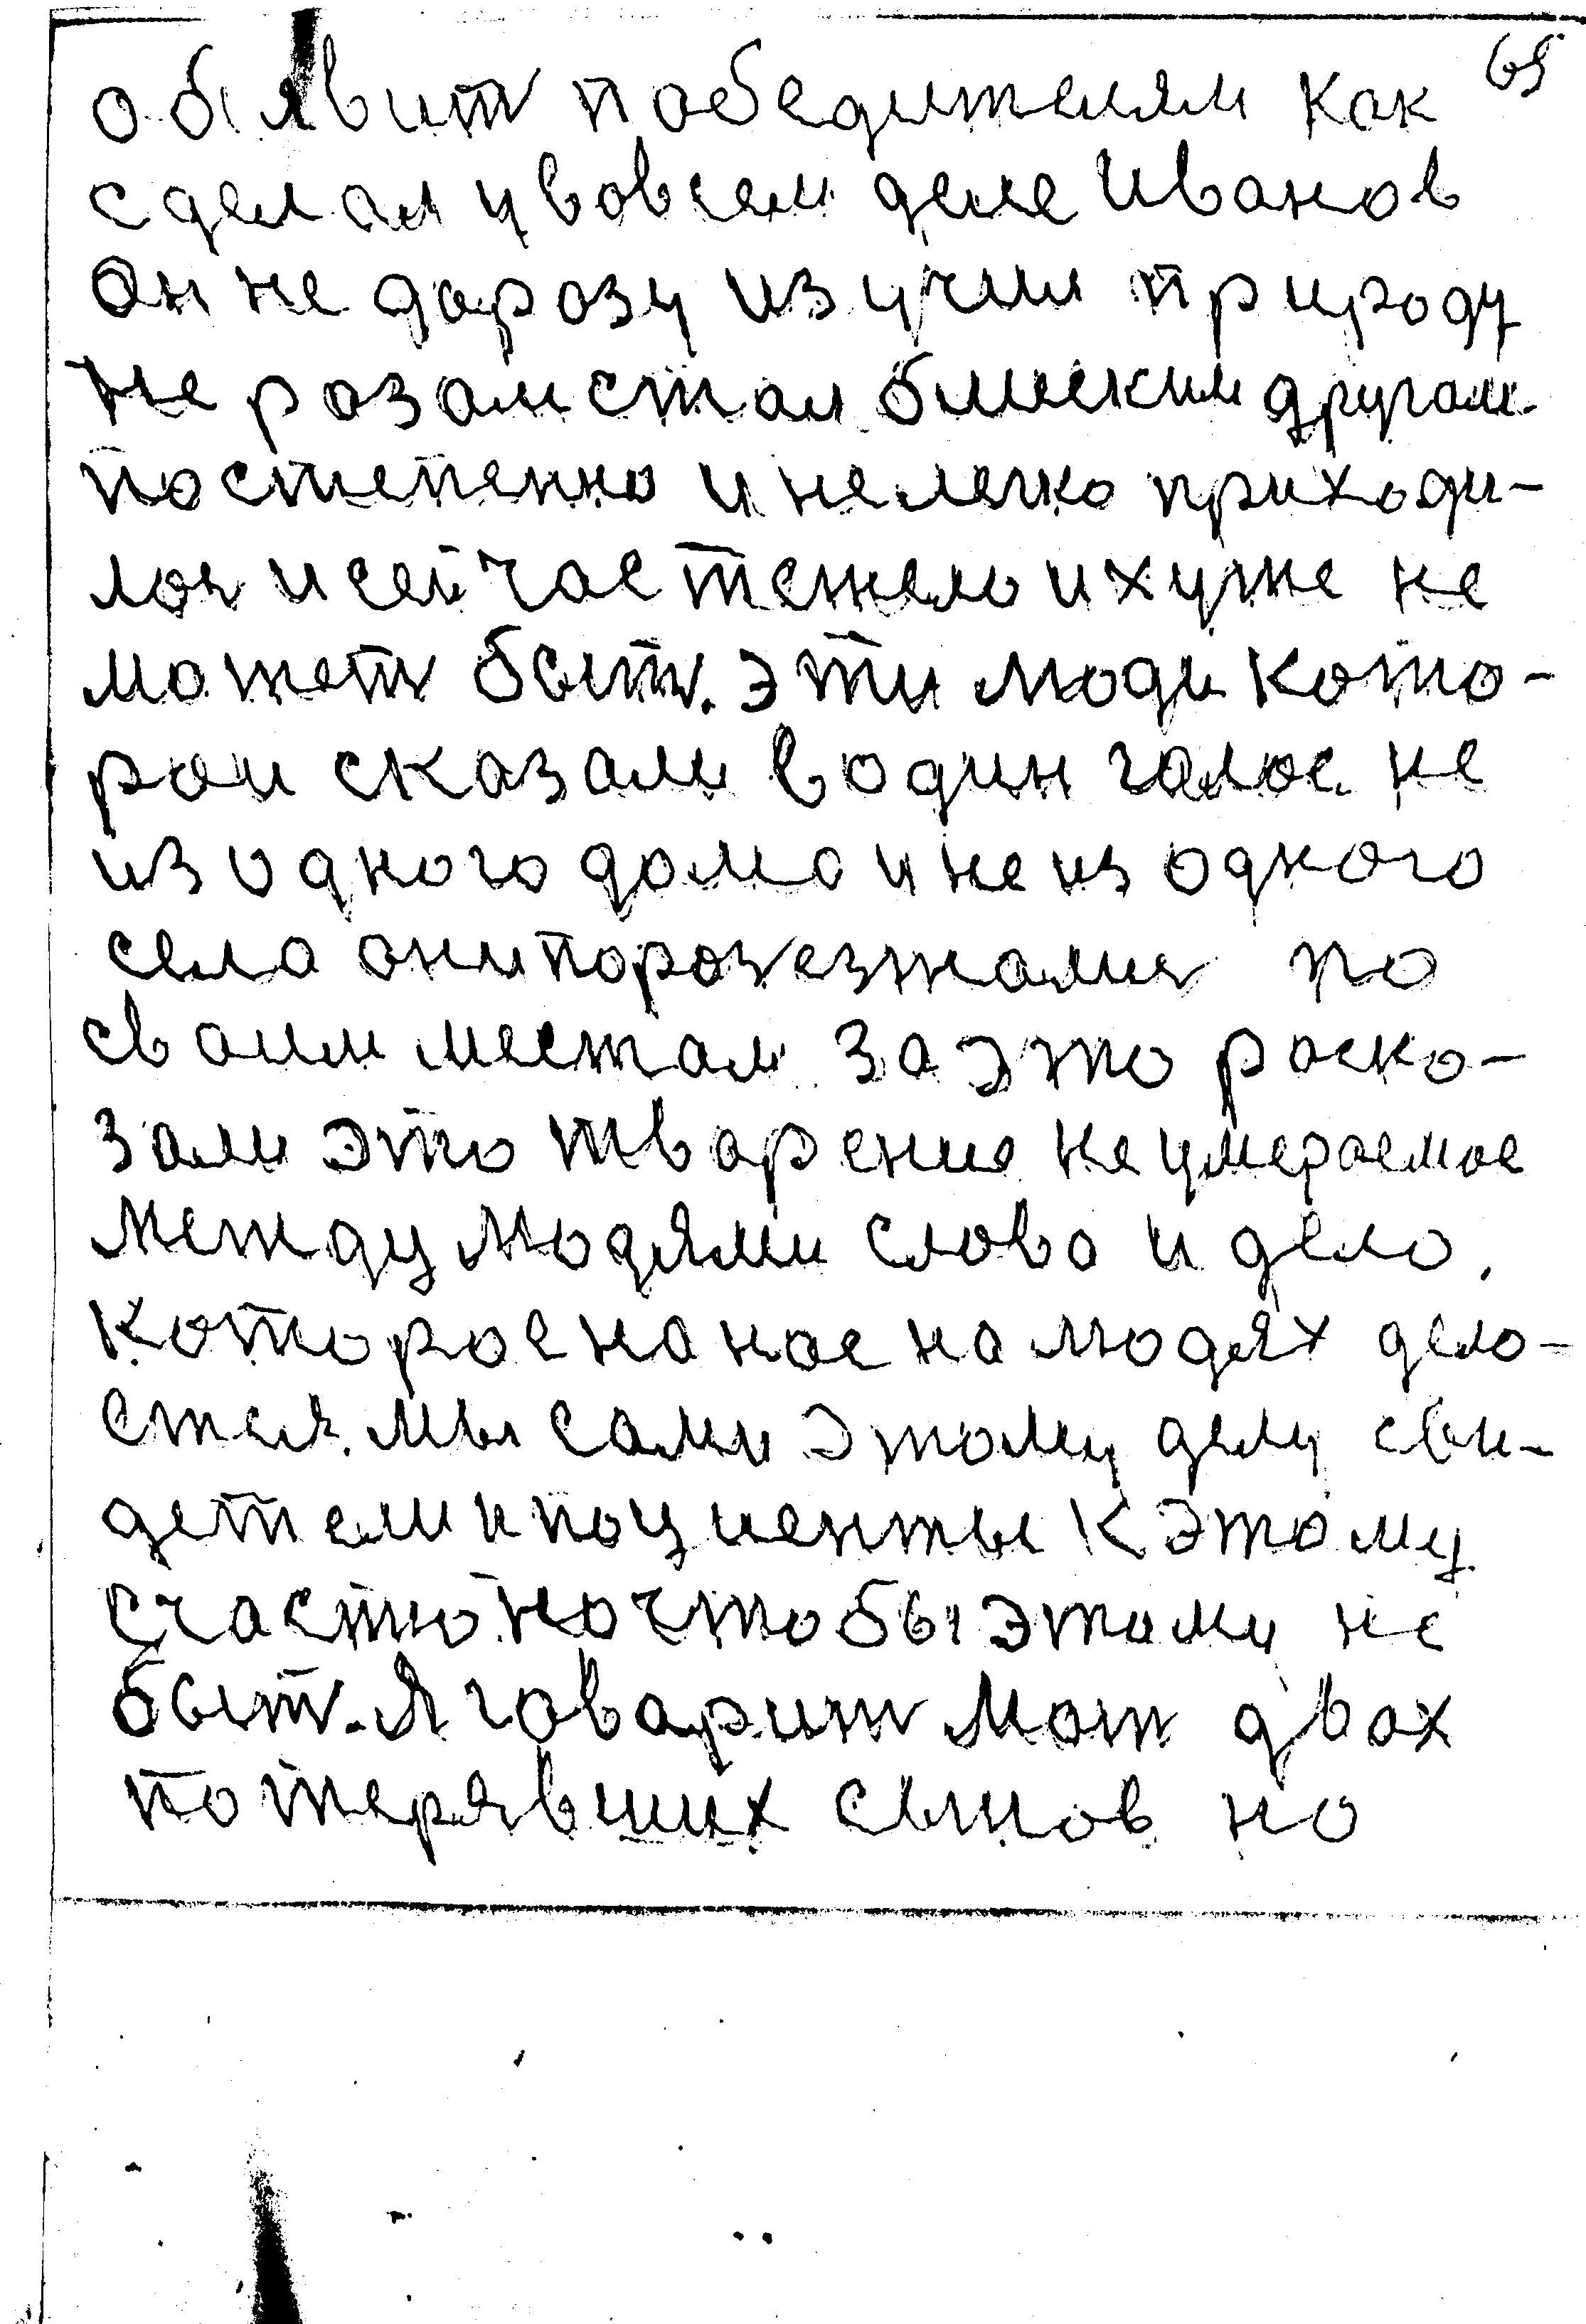 65
обявить победителям как
сделал у вовсем деле Иванов
Он не даразу изучил природу
не разам стал близким другам
постепенно и не легко приходи-
лоя и сейчас тежело и хуже не
может быть. эти люди кото-
рои сказали водин голос не
из одного дома и не из одного
села они поразезжались по
сваим местам за это раска-
зали это тварение не умераемае
между людями слово и дело,
которое на нас на людях дело-
ется. мы сами этому делу сви-
детели и поциенты к этому
счастю. но чтобы этому не
быть. Я говарит мать двох
потерявших сынов но